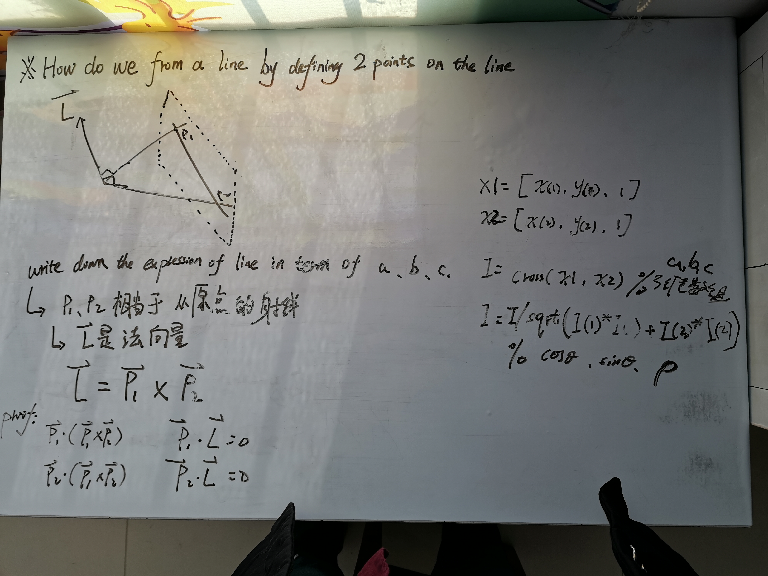 ※ How do we from a line by defining 2 points on the line
L
P₁
P₂
write down the expression of line in term of a、b、c.
↳ P₁、P₂ 相当于 从原点的射线
↳ L是法向量
L = P₁ × P₂
proof:
P₁·(P₁×P₂) P₁·L=0
P₂·(P₁×P₂) P₂·L=0
x1= [x(1), y(1), 1]
x2= [x(2), y(2), 1]
I= cross(x1, x2) % a,b,c
I=I/sqrt(I(1)*I(1)+I(2)*I(2))
% cosθ, sinθ, ρ